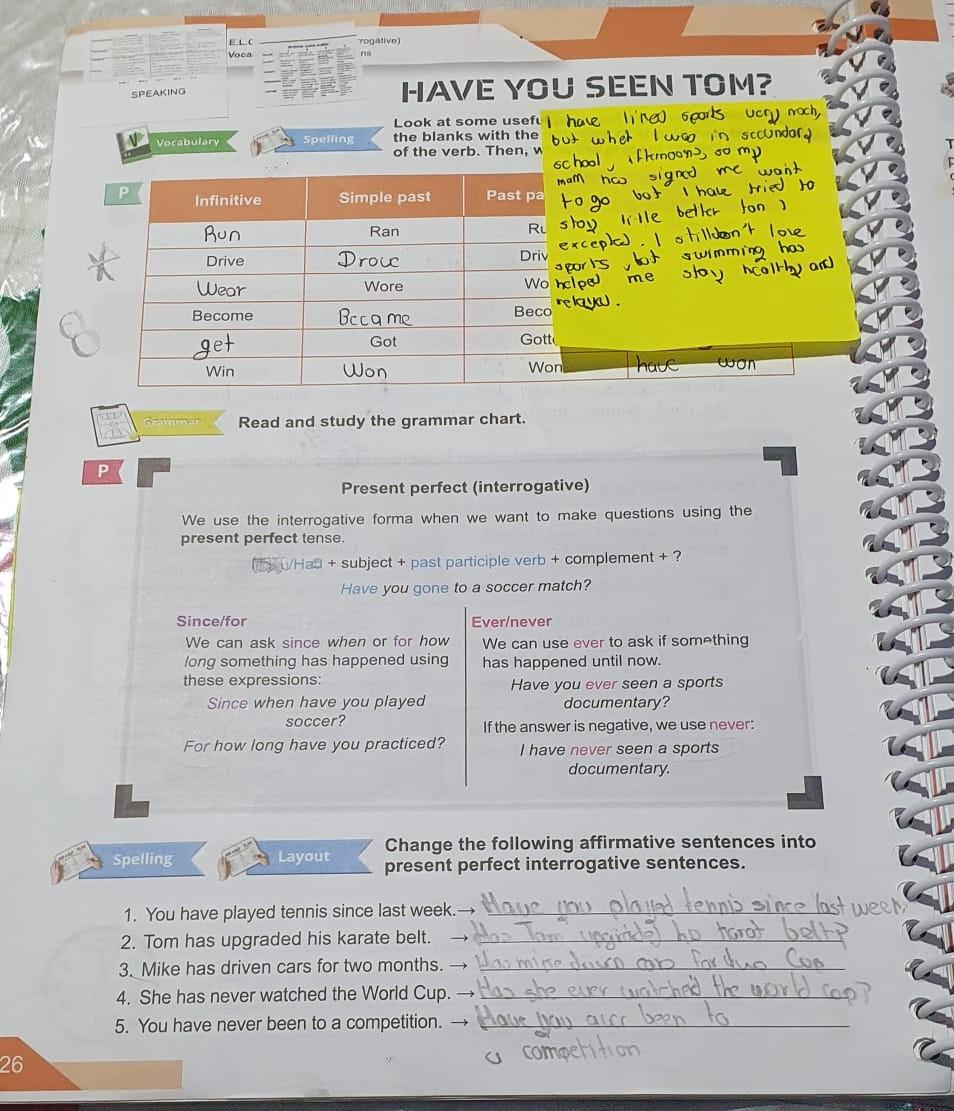 E.L.C
rogative)
Voca
ns
SPEAKING
HAVE YOU SEEN TOM?
Vocabulary
Spelling
Look at some usefu
the blanks with the
of the verb. Then, w
I have lined sports very moch,
but whet I was in seccundary
school, ifternoons, so my
mam has signed me want
to go but I have tried to
stay little better
excepted. I still don't love
sports, but swimming has
helped me stay healthy and
relaxed.
P
Infinitive Simple past Past pa
Run Ran Ru
Drive Drove Driv
Wear Wore Wo
Become Became Beco
get Got Gott
Win Won Won have won
Grammar
Read and study the grammar chart.
P
Present perfect (interrogative)
We use the interrogative forma when we want to make questions using the
present perfect tense.
/Has + subject + past participle verb + complement + ?
Have you gone to a soccer match?
Since/for
We can ask since when or for how
long something has happened using
these expressions:
Since when have you played
soccer?
For how long have you practiced?
Ever/never
We can use ever to ask if something
has happened until now.
Have you ever seen a sports
documentary?
If the answer is negative, we use never:
I have never seen a sports
documentary.
Spelling
Layout
Change the following affirmative sentences into
present perfect interrogative sentences.
1. You have played tennis since last week.→ Have you played tennis since last week
2. Tom has upgraded his karate belt. → Has Tom belt?
3. Mike has driven cars for two months. → Has
4. She has never watched the World Cup. → Has she ever watched the world cop?
5. You have never been to a competition. → Have you been to
a competition
26